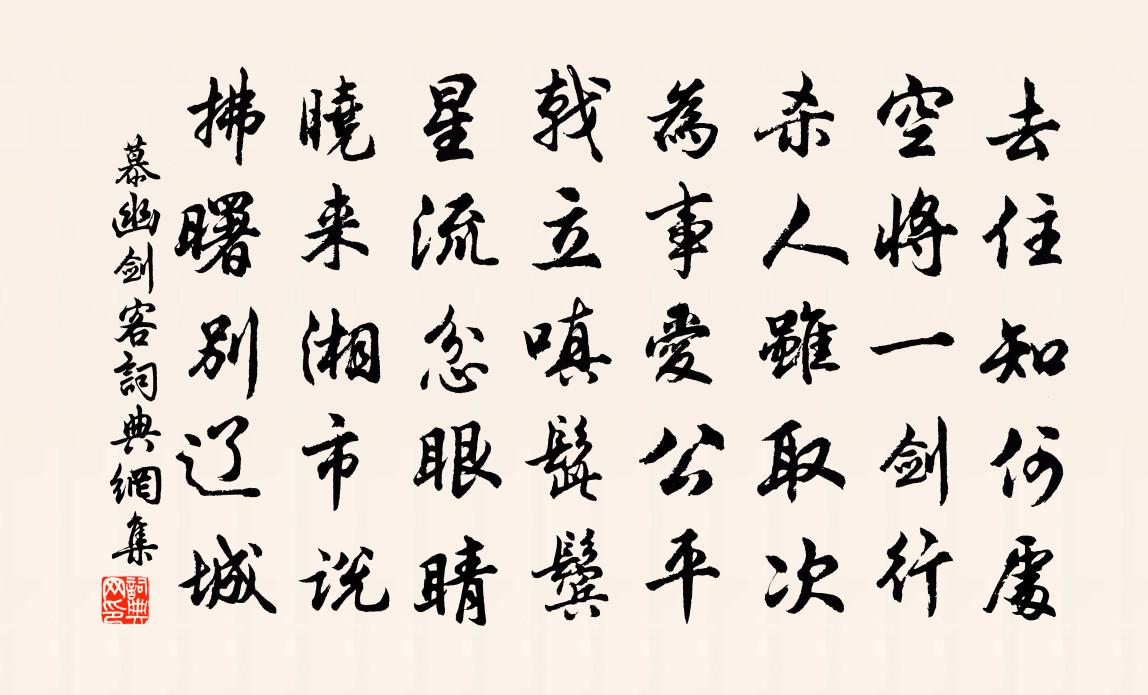 去住知何處
空將一剑行
杀人雖取次
為事愛公平
戟立嗔髭鬓
星流忿眼睛
曉来湘市说
拂曙别辽城
慕幽剑客詞典網集
詞典
网印